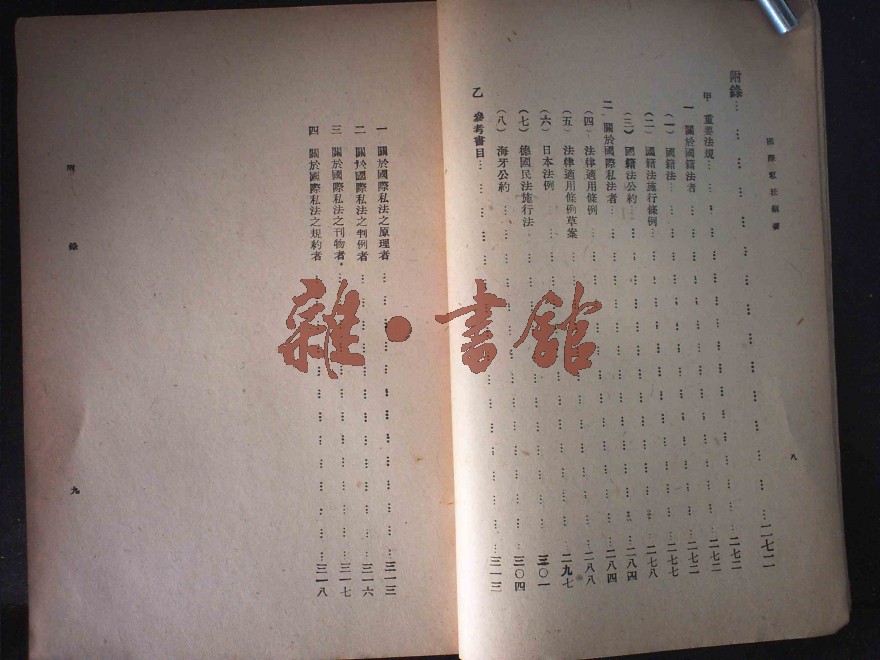 國際私法綱要
八
附錄……二七二
甲 重要法規……二七二
一 關於國籍法者……二七二
（一）國籍法……二七二
（二）國籍法施行條例……二七七
（三）國籍法公約……二七八
二 關於國際私法者……二八四
（四）法律適用條例……二八四
（五）法律適用條例草案……二八八
（六）日本法例……二九七
（七）德國民法施行法……三〇一
（八）海牙公約……三〇四
乙 參考書目……三一三
一 關於國際私法之原理者……三一三
二 關於國際私法之判例者……三一六
三 關於國際私法之刊物者……三一七
四 關於國際私法之規約者……三一八
附錄
九
雜·書館